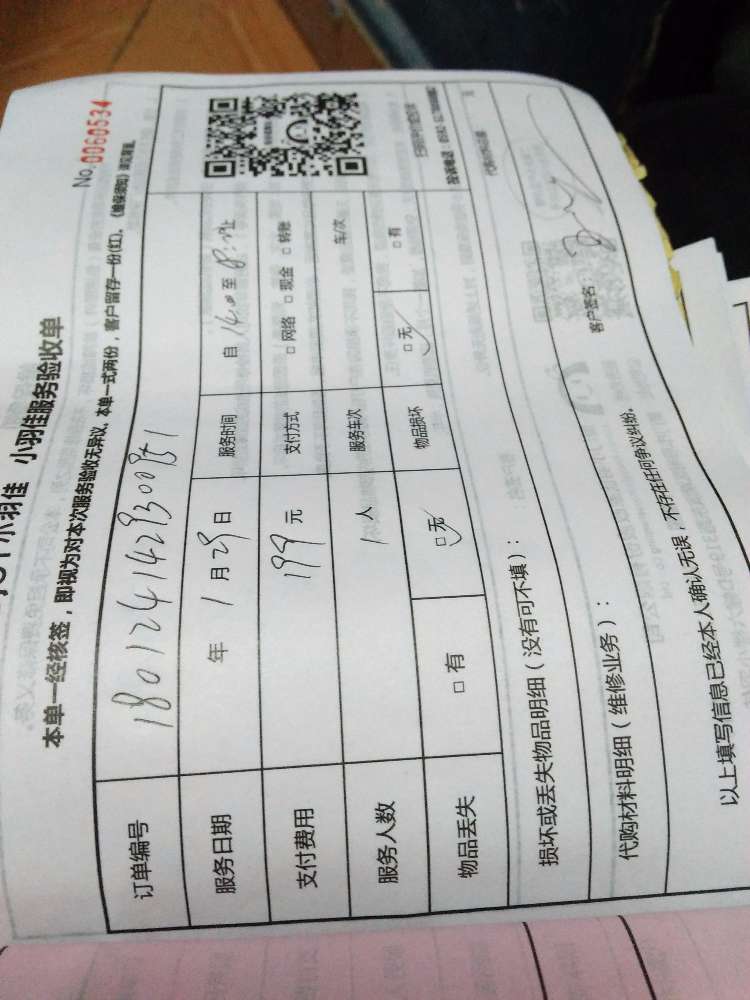 小羽佳 小羽佳服务验收单
No. 0060534
本单一经核签，即视为对本次服务验收无异议，本单一式两份，客户留存一份(红)。《维保须知》详见背面。
订单编号
服务日期 年 1月29日 服务时间 自 14:00 至 止
支付费用 199 元 支付方式 □网络 □现金 □转账
服务人数 1人 服务车次 车/次
物品丢失 □有 □无 物品损坏 □无 □有
损坏或丢失物品明细（没有可不填）：
代购材料明细（维修业务）： 元
以上填写信息已经本人确认无误，不存在任何争议纠纷。 客户签名：